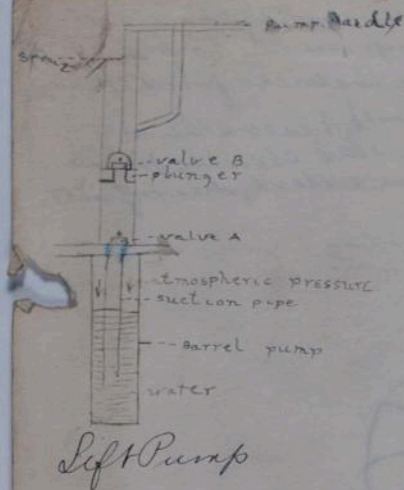 Pump Handle
spout
valve B
plunger
valve A
atmospheric pressure
suction pipe
Barrel pump
water
Lift Pump